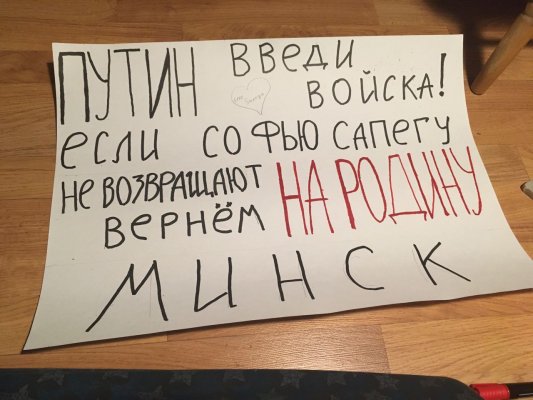 ПУТИН ВВЕДИ
ВОЙСКА!
если СОФЬЮ САПЕГУ
не ВОЗВРАЩАЮТ
ВЕРНЁМ НА РОДИНУ
МИНСК